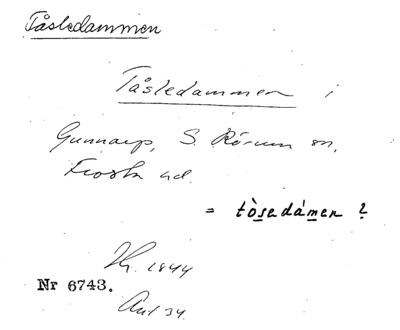 Tåsledammen
Tåsledammen i
Gunnarp, S. Rörum sn,
Frosta hd.
= tòsedámen ?
1844
Nr 6743.